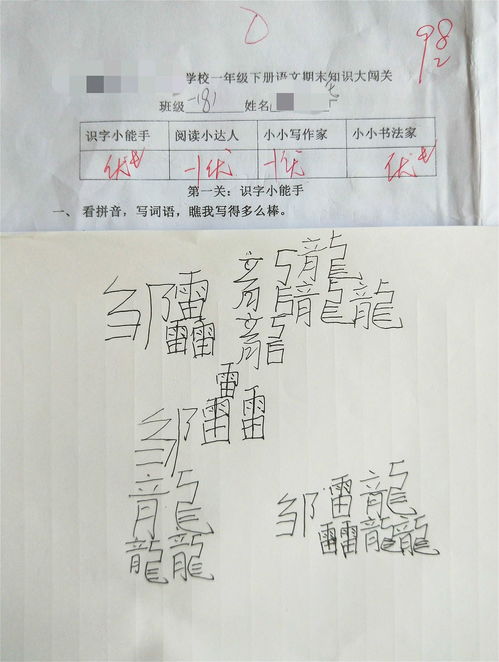 98
2
学校一年级下册语文期末知识大闯关
班级 一(8) 姓名
识字小能手 阅读小达人 小小写作家 小小书法家
优 优 优 优
第一关：识字小能手
一、看拼音，写词语，瞧我写得多么棒。
邹靐龍龘
龍
靐
邹
龘
邹靐龘